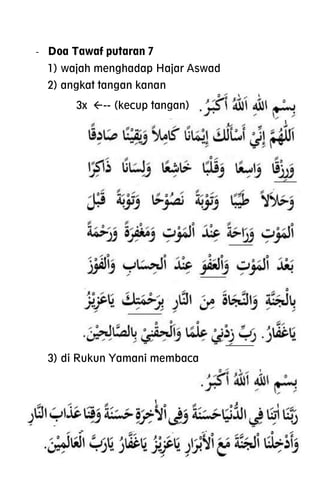 - Doa Tawaf putaran 7
1) wajah menghadap Hajar Aswad
2) angkat tangan kanan
3x <-- (kecup tangan) بِسْمِ اللهِ اَللهُ أَكْبَرُ.
اَللّٰهُمَّ إِنِّيْ أَسْأَلُكَ إِيْمَانًا كَامِلاً وَيَقِيْنًا صَادِقًا
وَرِزْقًا وَاسِعًا وَقَلْبًا خَاشِعًا وَلِسَانًا ذَاكِرًا
وَحَلاَلاً طَيِّبًا وَتَوْبَةً نَصُوْحًا وَتَوْبَةً قَبْلَ
الْمَوْتِ وَرَاحَةً عِنْدَ الْمَوْتِ وَمَغْفِرَةً وَرَحْمَةً
بَعْدَ الْمَوْتِ وَالْعَفْوَ عِنْدَ الْحِسَابِ وَالْفَوْزَ
بِالْجَنَّةِ وَالنَّجَاةَ مِنَ النَّارِ بِرَحْمَتِكَ يَاعَزِيْزُ
يَاغَفَّارُ. رَبِّ زِدْنِيْ عِلْمًا وَالْحِقْنِيْ بِالصَّالِحِيْنَ.
3) di Rukun Yamani membaca
بِسْمِ اللهِ اَللهُ أَكْبَرُ.
رَبَّنَا اٰتِنَا فِي الدُّنْيَاحَسَنَةً وَفِي اْلأٰخِرَةِ حَسَنَةً وَقِنَا عَذَابَ النَّارِ
وَأَدْخِلْنَا الْجَنَّةَ مَعَ اْلأَبْرَارِ يَاعَزِيْزُ يَاغَفَّارُ يَارَبَّ الْعَالَمِيْنَ.